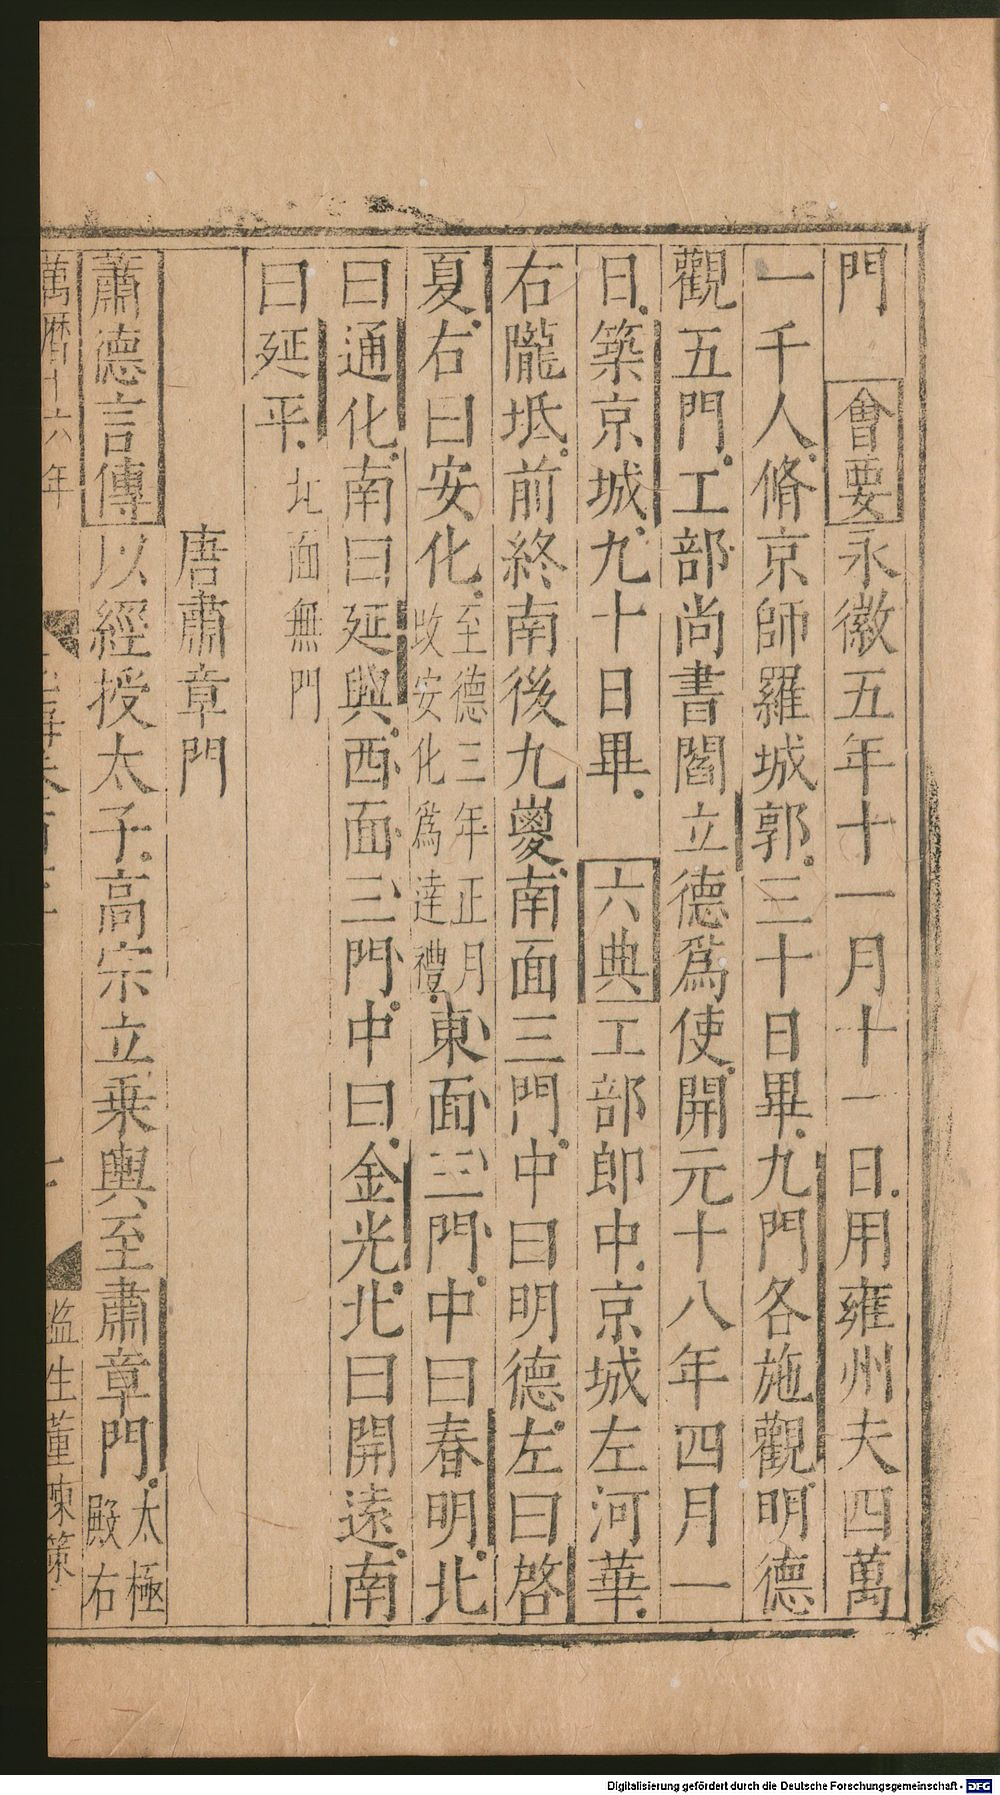 門　會要永徽五年十一月十一日用雍州夫四萬
一千人脩京師羅城郭三十日畢九門各施觀明德
觀五門工部尚書閻立德爲使開元十八年四月一
日築京城九十日畢　六典工部郎中京城左河華
右隴坻前終南後九嵕南面三門中曰明德左曰啓
夏右曰安化至德三年正月改安化爲達禮東面三門中曰春明北
曰通化南曰延興西面三門中曰金光北曰開遠南
曰延平北面無門
唐肅章門
蕭德言傳以經授太子高宗立乗輿至肅章門太極殿右
萬曆十六年
監生董
Digitalisierung gefördert durch die Deutsche Forschungsgemeinschaft - DFG